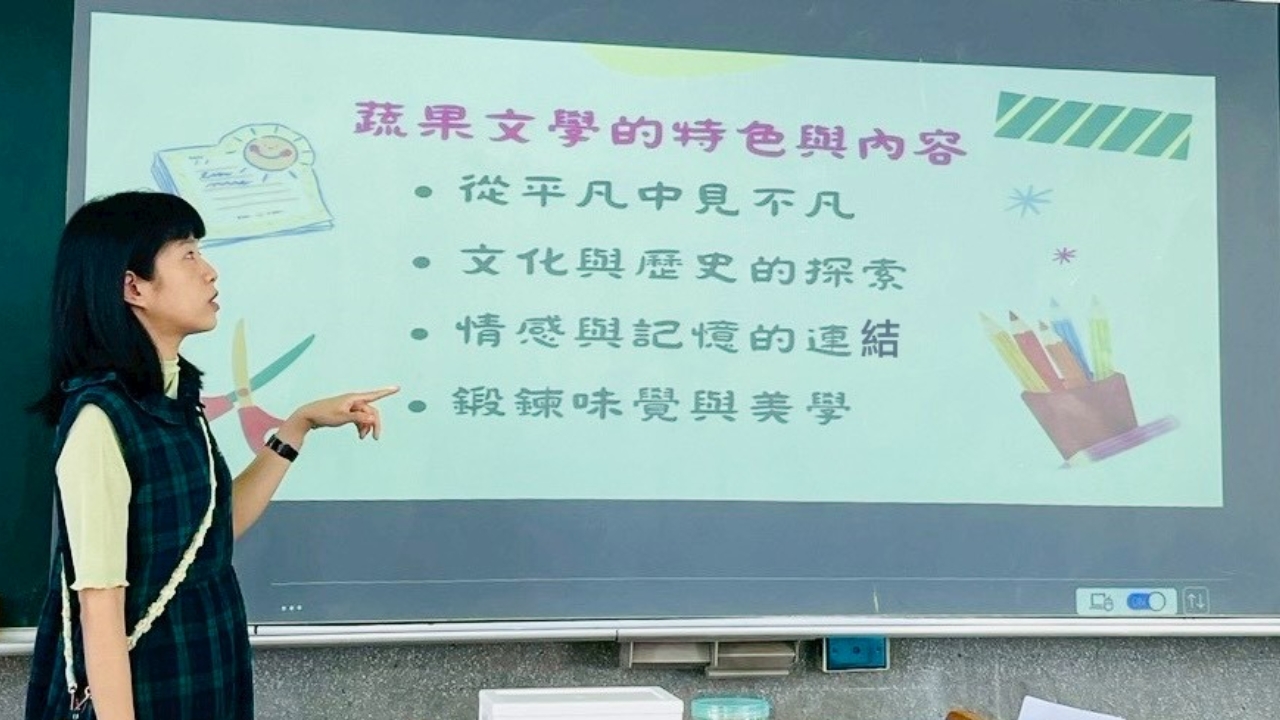 蔬果文學的特色與內容
• 從平凡中見不凡
• 文化與歷史的探索
• 情感與記憶的連結
• 鍛鍊味覺與美學
ON